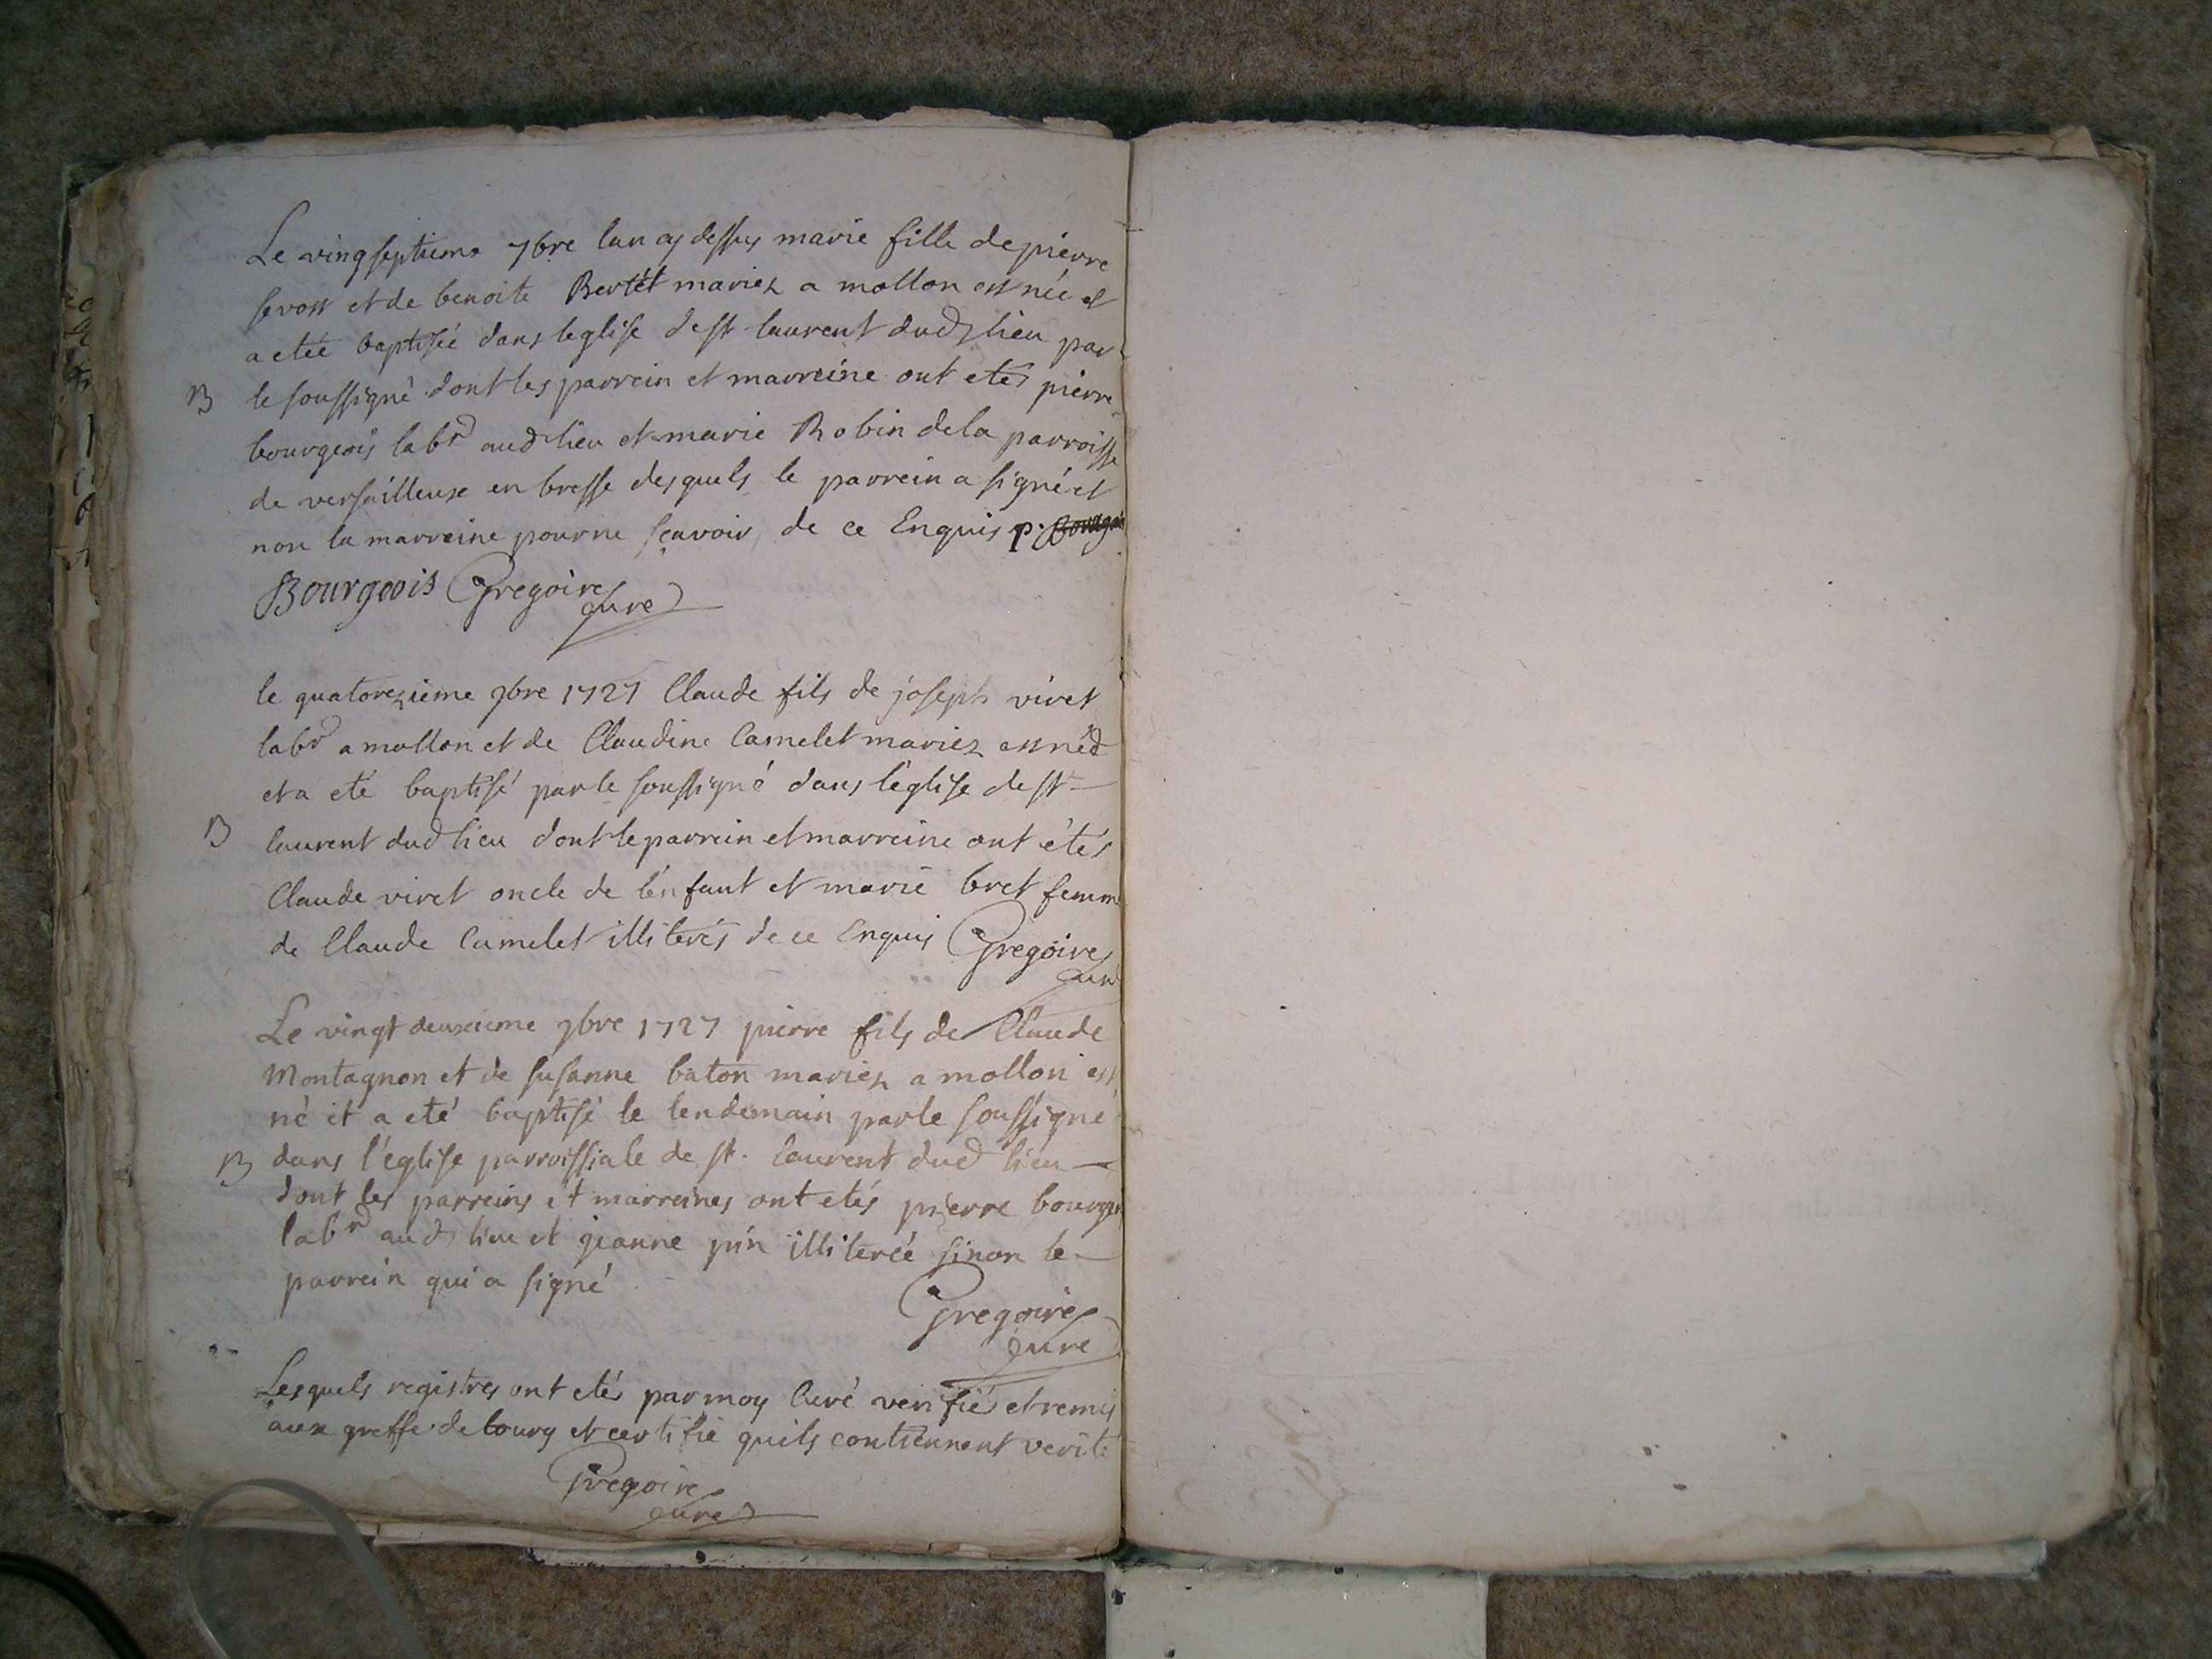 Le vingseptieme 7bre lan cy dessus marie fille de pierre
sevost et de benoite Bertét mariez a mollon est née et
a etée baptisée dans leglise de st laurent dud lieu par
B le soussigné dont les parrein et marreine ont etés pierre
bourgeois labr aud lieu et marie Robin dela parroisse
de versailleux en bresse desquels le parrein a signé et
non la marreine pour ne scavoir de ce Enquis p. Bourgois
Bourgeois Gregoire
curé
le quatorezieme 9bre 1727 Claude fils de joseph viret
labr a mollon et de Claudine Camelet mariez est né
et a eté baptisé par le soussigné dans l'église de st
B laurent dud lieu dont le parrein et marreine ont étés
Claude viret oncle de l'enfant et marie bret femme
de Claude Camelet illiterés de ce Enquis Gregoire
curé
Le vingt deuxieme 9bre 1727 pierre fils de Claude
Montagnon et de susanne baton mariez a mollon est
né et a eté baptisé le lendemain par le soussigné
B dans l'église parroissiale de st. laurent dud lieu
dont les parreins et marreines ont etés pierre bourgeois
labr aud lieu et jeanne pin illiterée sinon le
parrein qui a signé
Gregoire
curé
Lesquels registres ont etés par moy Curé verifiés et remis
aux greffe de bourg et certifie quils contiennent verité
Gregoire
curé